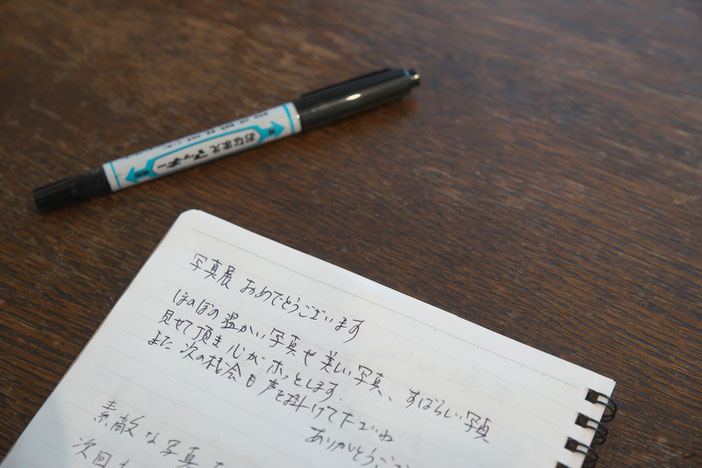 おなまえ マッキー
写真展 おめでとうございます
ほのぼの温かい写真や美しい写真、すばらしい写真
見せて頂き心がホッとします.
また次の機会も声を掛けて下さいね
ありがとうござ
素敵な写真を
次回も